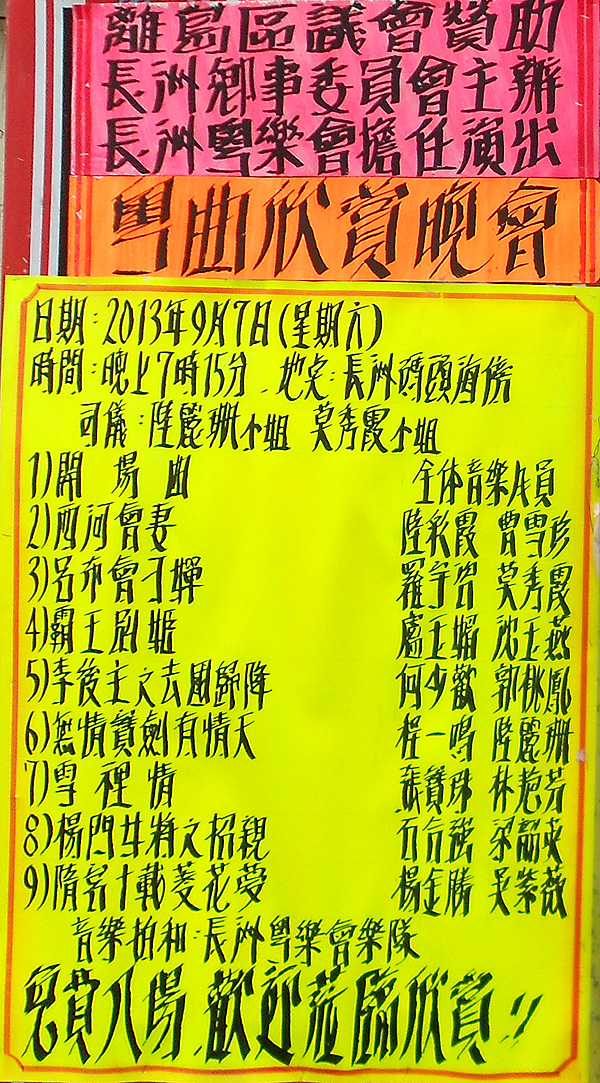 離島區議會贊助
長洲鄉事委員會主辦
長洲粵樂會擔任演出
粵曲欣賞晚會
日期:2013年9月7日(星期六)
時間:晚上7時15分 地点:長洲碼頭海傍
司儀:陸麗珊小姐 莫秀霞小姐
1)開場曲 全体音樂人員
2)西河會妻 陸彩霞 曹雪珍
3)呂布會刁嬋 羅宇岩 莫秀霞
4)霸王別姬 盧玉媚 沈玉燕
5)李後主之去國歸降 何少歡 郭桃鳳
6)無情寶劍有情天 程一鳴 陸麗珊
7)雪裡情 張寶珠 林艷芳
8)楊門女將之招親 石台強 梁韶英
9)隋宮十載菱花夢 楊金勝 吳紫薇
音樂拍和:長洲粵樂會樂隊
免費入場 歡迎蒞臨欣賞!!